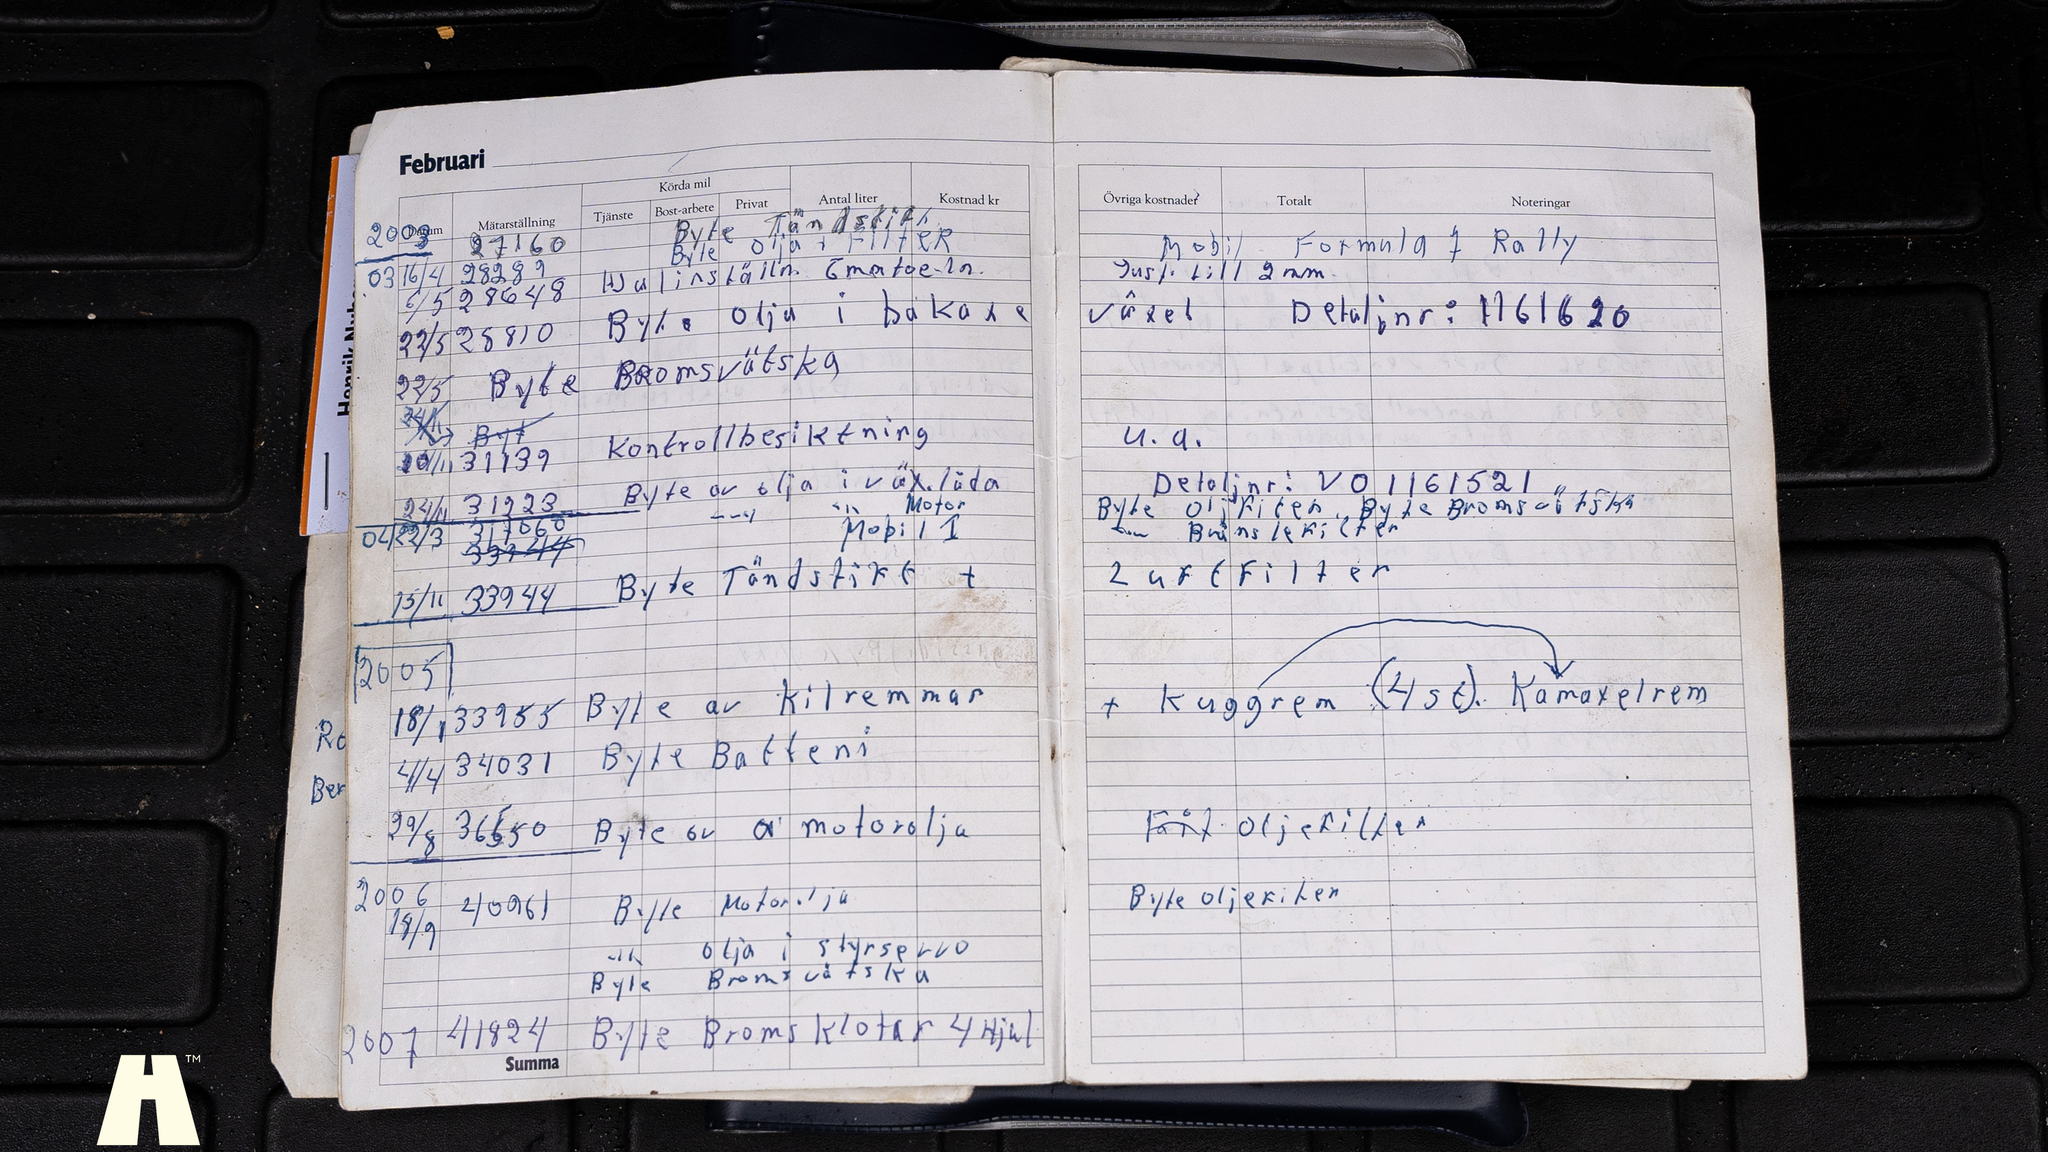 Februari
Körda mil
Datum Mätarställning Tjänste Bost-arbete Privat Antal liter Kostnad kr Övriga kostnader Totalt Noteringar
2003 27160 Byte Tändstift
Byte olja + FilTER Mobil Formula 7 Rally
03 16/4 28289 Hjulinställn. Just. till 2 mm.
6/5 28648
22/5 28810 Byte olja i bakaxe växel Detaljnr: 1161620
22/5 Byte Bromsvätska
24/11 Byt
20/11 31139 Kontrollbesiktning u.a.
24/11 31223 Byte av olja i väx.låda Detaljnr: VO 1161521
04/22/3 317060 Motor Byte oljefilter, Byte Bromsvätska
33944 Mobil 1 Bränslefilter
15/11 33944 Byte Tändstift + Luftfilter
2005
18/1 33955 Byte av Kilremmar + Kuggrem (4 st). Kamaxelrem
4/4 34031 Byte Batteri
29/8 36550 Byte av motorolja oljefilter
2006
18/9 40961 Byte Motorolja Byte oljefilter
-"- olja i styrservo
Byte Bromsvätska
2007 41824 Byte Bromsklotar 4 Hjul
Summa
Henrik
Ro
Ber
H™